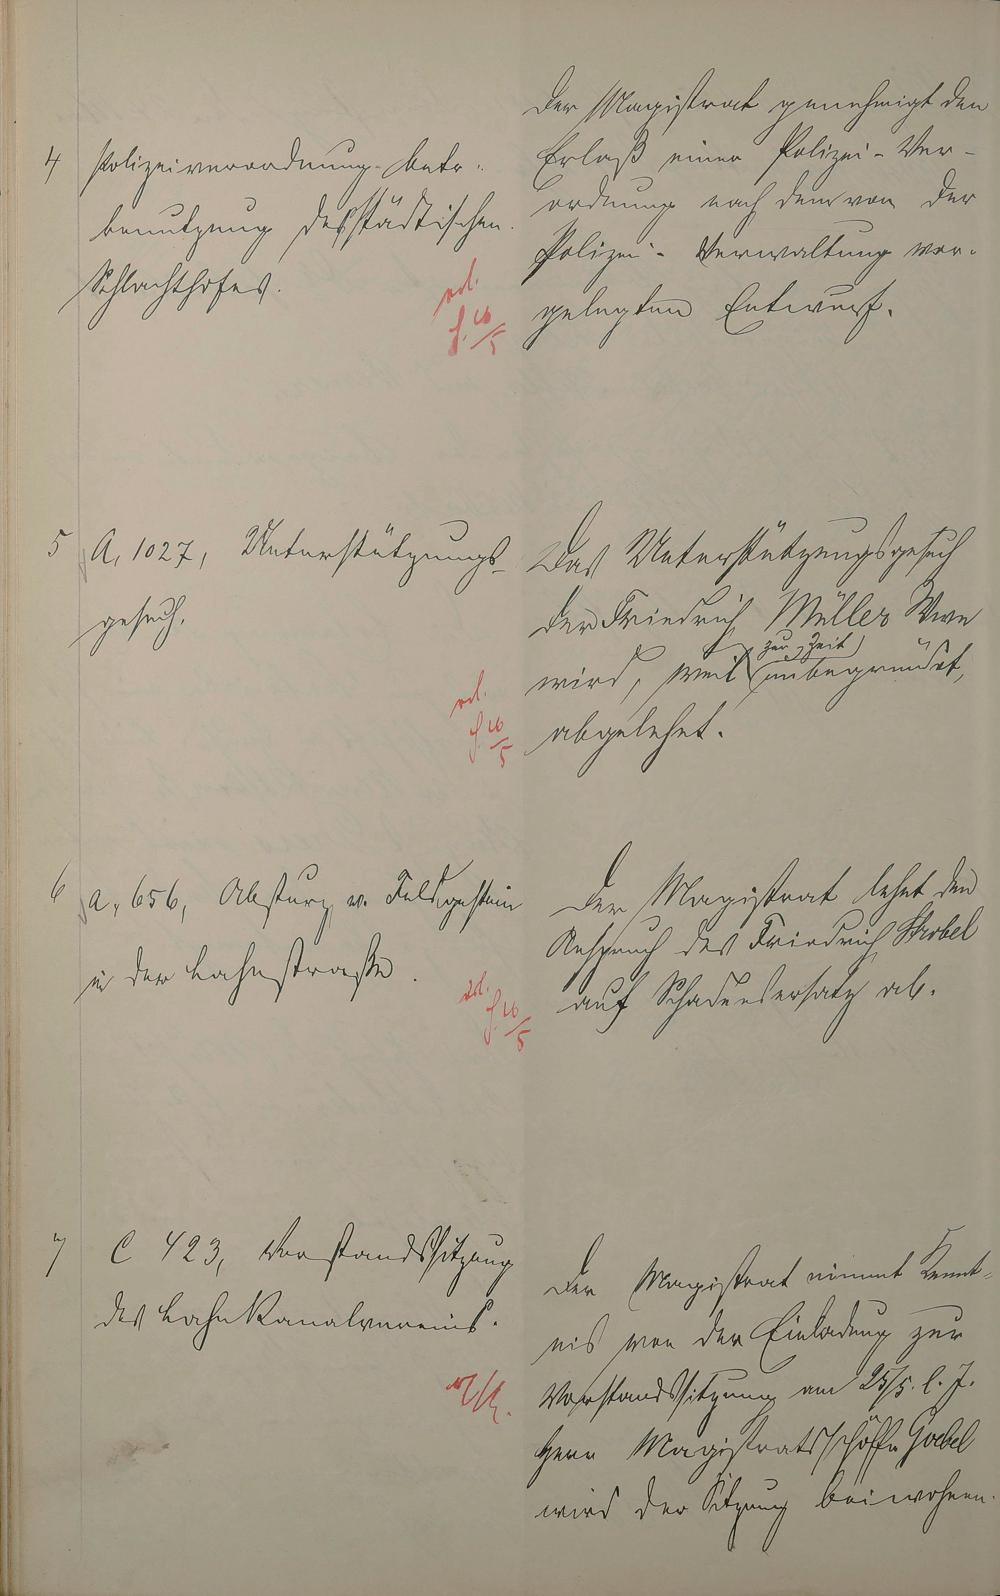 4 Polizeiverordnung betr.
Benutzung des städtischen
Schlachthofes.
erl.
16/5
Der Magistrat genehmigt den
Erlaß einer Polizei-Ver-
ordnung nach dem von der
Polizei-Verwaltung vor-
gelegten Entwurf.
5 A. 1027, Unterstützungs-
gesuch.
erl.
16/5
Das Unterstützungsgesuch
der Friedrich Müller Wwe
zur Zeit
wird, weil unbegründet,
abgelehnt.
6 A. 656, Absturz v. Felsgestein
in der Lahnstraße.
erl.
16/5
Der Magistrat lehnt den
Anspruch des Friedrich Strobel
auf Schadensersatz ab.
7 C 423, Vorstandssitzung
des Lahnkanalvereins.
Der Magistrat nimmt Kennt-
nis von der Einladung zur
Vorstandssitzung am 25/5. l. J.
Herr Magistratsschöffe Goebel
wird der Sitzung beiwohnen.